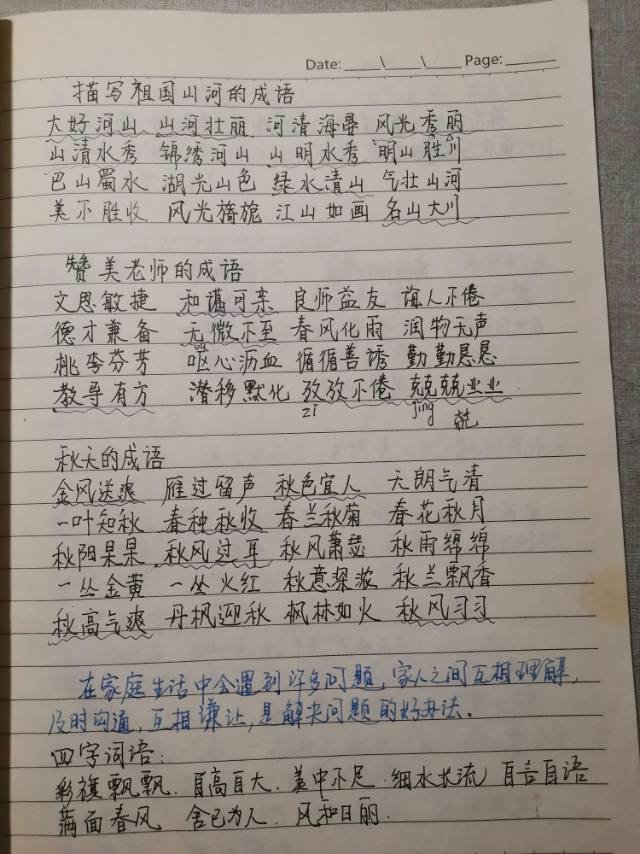 Date: ____\____\____ Page: ______
描写祖国山河的成语
大好河山 山河壮丽 河清海晏 风光秀丽
山清水秀 锦绣河山 山明水秀 明山胜川
巴山蜀水 湖光山色 绿水清山 气壮山河
美不胜收 风光旖旎 江山如画 名山大川
赞美老师的成语
文思敏捷 和蔼可亲 良师益友 诲人不倦
德才兼备 无微不至 春风化雨 润物无声
桃李芬芳 呕心沥血 循循善诱 勤勤恳恳
教导有方 潜移默化 孜孜不倦 兢兢业业
zi jing 兢
秋天的成语
金风送爽 雁过留声 秋色宜人 天朗气清
一叶知秋 春种秋收 春兰秋菊 春花秋月
秋阳杲杲 秋风过耳 秋风萧瑟 秋雨绵绵
一丛金黄 一丛火红 秋意深浓 秋兰飘香
秋高气爽 丹枫迎秋 枫林如火 秋风习习
在家庭生活中会遇到许多问题,家人之间互相理解,
及时沟通,互相谦让,是解决问题的好办法。
四字词语:
彩旗飘飘.自高自大.美中不足.细水长流 自言自语
满面春风 舍己为人.风和日丽.